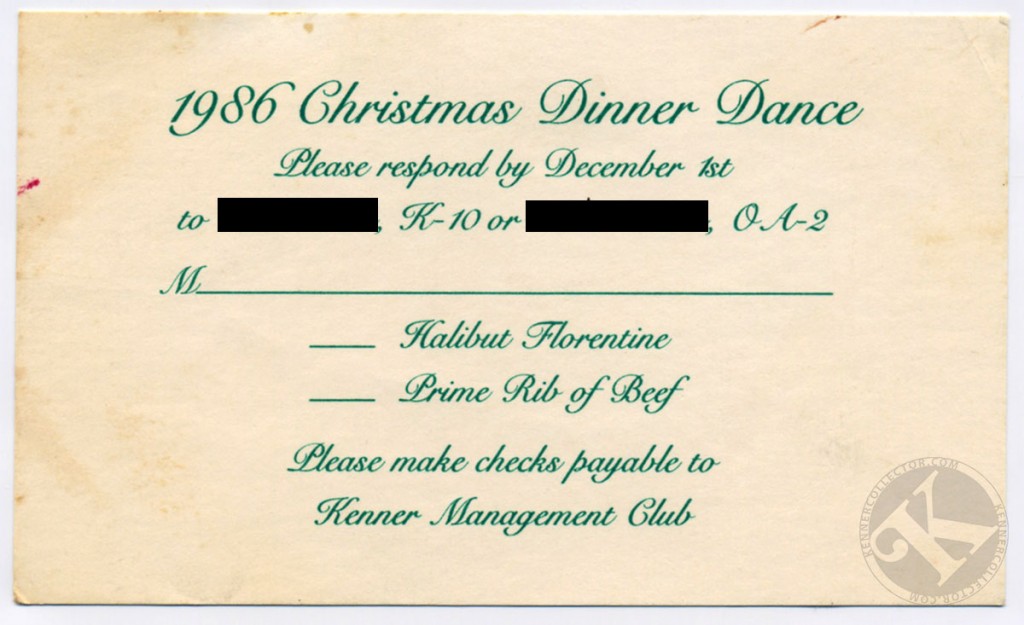 1986 Christmas Dinner Dance
Please respond by December 1st
to , K-10 or , OA-2
M
Halibut Florentine
Prime Rib of Beef
Please make checks payable to
Kenner Management Club
KENNERCOLLECTOR.COM
KENNERCOLLECTOR.COM
K